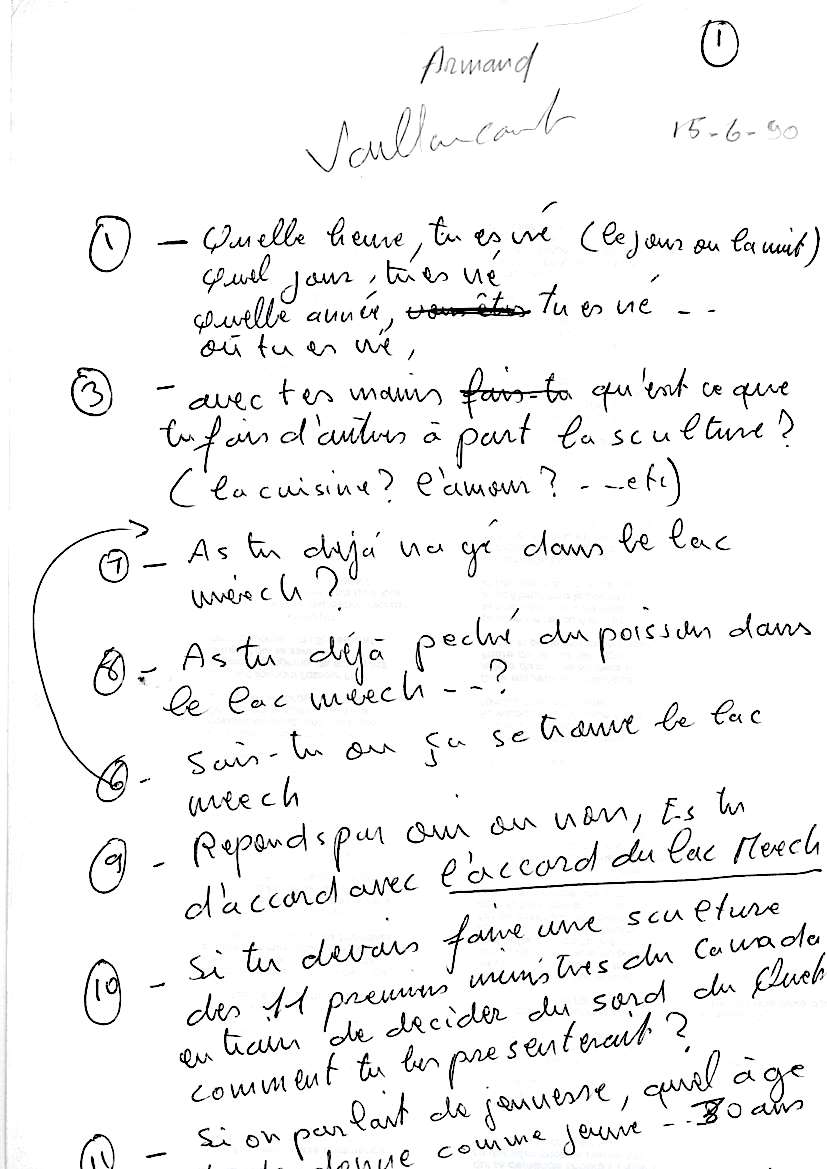 ①
Armand
Vaillancourt
15-6-90
① - Quelle heure, tu es né (le jour ou la nuit)
quel jour, tu es né
quelle année, vous êtes tu es né - -
où tu es né,
③ - avec tes mains fais-tu qu'est ce que
tu fais d'autres à part la sculture?
(la cuisine? l'amour? - - -etc)
⑦ - As tu dejá nagé dans le lac
méech?
⑧ - As tu déjà peché du poisson dans
le lac meech - - -?
⑥ - Sais-tu ou ça se trouve le lac
meech
⑨ - Reponds par oui ou non, Es tu
d'accord avec l'accord du lac Meech
⑩ - Si tu devais faire une sculture
des 11 premiers ministres du Canada
en train de decider du sord du Queb
comment tu les presenterait?
⑪ - Si on parlait de jeunesse, quel âge
donne comme jeune - - 30 ans